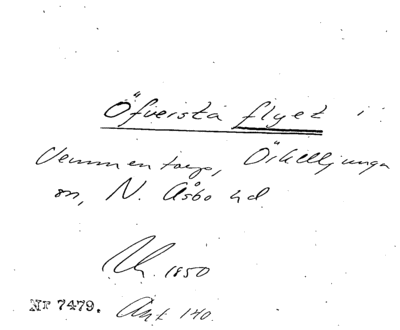 Öfversta flyet i
Vemmentorp, Örkelljunga
sn, N. Åsbo hd
1850
Nr 7479. Ant 140.